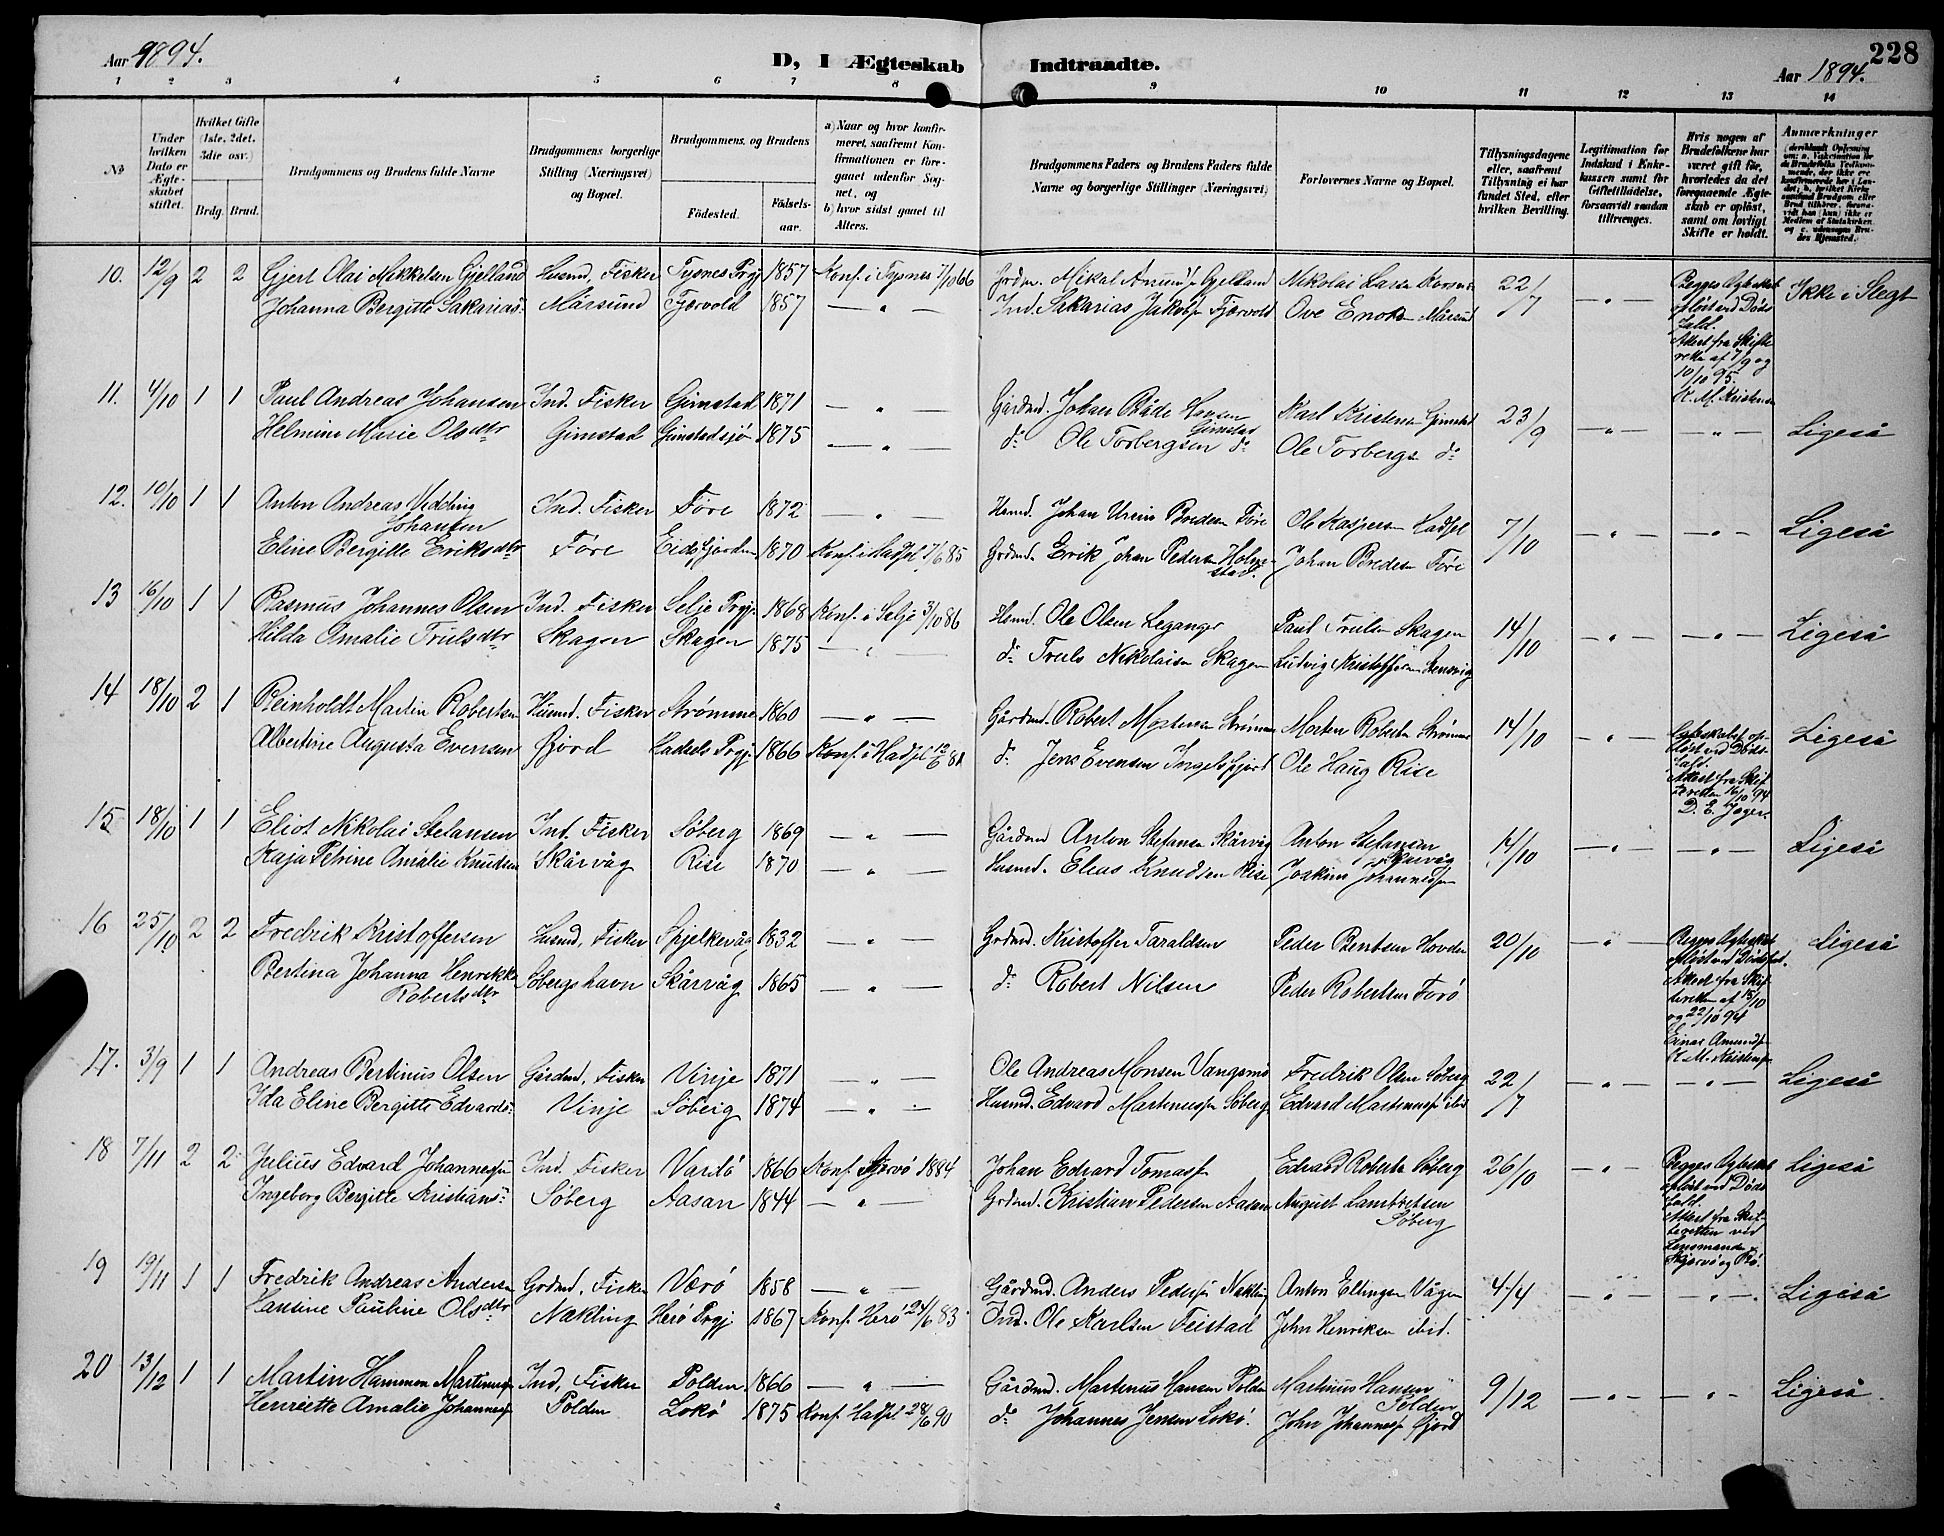 Aar 1894. D, I Ægteskab Indtraadte. Aar 1894. 228
1 2 3 4 5 6 7 8 9 10 11 12 13 14
No
Under hvilken Dato er Ægteskabet stiftet.
Hvilket Gifte (1ste, 2det, 3die osv.)
Brdg. Brud.
Brudgommens og Brudens fulde Navne
Brudgommens borgerlige Stilling (Næringsvei) og Bopæl.
Brudgommens. og Brudens
Fødested. Fødselsaar.
a) Naar og hvor konfirmeret, saafremt Konfirmationen er foregaaet udenfor Sognet, og
b) hvor sidst gaaet til Alters.
Brudgommens Faders og Brudens Faders fulde Navne og borgerlige Stillinger (Næringsvei)
Forlovernes Navne og Bopæl.
Tillysningsdagene eller, saafremt Tillysning ei har fundet Sted, efter hvilken Bevilling.
Legitimation for Indskud i Enkekassen samt for Giftetilladelse, forsaavidt saadan tiltrænges.
Hvis nogen af Brudefolkene har været gift før, hvorledes da det foregaaende Ægteskab er opløst, samt om lovligt Skifte er holdt.
Anmærkninger
10. 12/9 2 2 Gjert Olai Mikkelsen Gjelland Husmd. Fisker Tysnes Prgj. 1857 Konf. i Tysnes 7/10 66 Grdm. Mikal Amunds. Gjelland Nikolai Larsen 22/7 — " — Begges Ægteskab opløst ved Dødsfald. Ikke i Slegt
Johanna Bergitte Sakarias: Mårsund Fjærvold 1857 — " — Ind. Sakarias Jakobs. Fjærvold Ove Enoks. Mårsund
Attest fra Skifteretten af 7/9 og 10/10 95. K. M. Kristensen
11. 4/10 1 1 Paul Andreas Johansen Ind. Fisker Gimstad 1871 — " — Gårdmd. Johan Både Hansen Gimstad Karl Kristensen Gimstad 23/9 — " — — " — Ligeså
Helmine Marie Olsdtr Gimstad Gimstadsjø 1875 — " — do Ole Torbergsen do Ole Torbergs. do
12. 10/10 1 1 Anton Andreas Vedding Johansen Ind. Fisker Føre 1872 — " — Husmd. Johan Ursin Bredesen Føre Ole Kaspersen Hadsel 7/10 — " — — " — Ligeså
Eline Bergitte Eriksdtr Føre Eidsfjorden 1870 Konf. i Hadsel 7/6 85 Grdmd. Erik Johan Pedersen Holmstad. Johan Bredesen Føre
13 16/10 1 1 Rasmus Johannes Olsen Ind. Fisker Selje Prgj. 1868 Konf. i Selje 3/10 86 Husmd. Ole Olsen Leganger Paul Trulsen Skagen 14/10 — " — — " — Ligeså
Hilda Amalie Trulsdtr Skagen Skagen 1875 — " — do Truls Nikolaisen Skagen Ludvig Kristoffersen
14 18/10 2 1 Reinholdt Martin Robertsen Husmd. Fisker Strømme 1860 — " — Gårdmd. Robert Mortensen Strømme Morten Roberts. Strømme 14/10 — " — Ægteskabet opløst ved Dødsfald. Ligeså
Albertine Augusta Evensen Fjord Hadsels Prgj. 1866 Konf. i Hadsel 12/6 81 do Jens Evensen Ingelsfjord Ole Haug Rise
Attest fra Skifteretten 16/10 94 D. E. Jæger.
15 18/10 1 1 Eliot Nikolai Stefansen Ind. Fisker Søberg 1869 — " — Gårdmd Anton Stefansen Skårvåg Anton Stefansen Skårvåg 14/10 — " — — " — Ligeså
Kaja Petrine Amalie Knudsen Skårvåg Rise 1870 — " — Husmd. Elias Knudsen Rise Joakim Johannessen
16 25/10 2 2 Fredrik Kristoffersen Husmd, Fisker Spjelkevåg 1832 — " — Grdmd. Kristoffer Taraldsen Peder Berntsen Hovden 20/10 — " — Begges Ægteskab opløst ved Dødsfald. Ligeså
Bertina Johanna Henrikke Robertsdtr Søbergshavn Skårvåg 1865 — " — do Robert Nilsen Peder Robertsen Forø
Attest fra Skifteretten af 15/10 og 22/10 94 Einar Amunds. K. M. Kristens.
17. 3/9 1 1 Andreas Bertinus Olsen Gårdmd, Fisker Vinje 1871 — " — Ole Andreas Monsen Vangsmo Fredrik Olsen Søberg 22/7 — " — — " — Ligeså
Ida Eline Bergitte Edvards: Vinje Søberg 1874 — " — Husmd. Edvard Martinuss. Søberg Edvard Martinuss. ibid
18 7/11 2 2 Julius Edvard Johannesen Ind. Fisker Vardö 1866 Konf. Skjervø 1884 Johan Edvard Tomass. Edvard Roberts. Søberg 26/10 — " — Begges Ægteskab opløst ved Dødsfald. Ligeså
Ingeborg Bergitte Kristians: Søberg Aasan 1844 — " — Grdmd. Kristian Pedersen Aasan August Lambretsen Søberg
Attest fra Skifteretten ved Lensmanden i Skjervø og Bø.
19 19/11 1 1 Fredrik Andreas Andersen Grdmd, Fisker Værö 1858 — " — Gårdmd. Anders Pedersen Nakling Anton Ellingsen Vågen 4/4 — " — — " — Ligeså
Hansine Pauline Olsdtr Nakling Herø Prgj. 1867 Konf. Herø 24/6 83 Ind. Ole Karlsen Feistad John Henriksen ibid.
20 13/12 1 1 Martin Hammon Martinussen Ind, Fisker Polden 1866 — " — Gårdmd. Martinus Hansen Polden Martinus Hansen Polden 9/12 — " — — " — Ligeså.
Henriette Amalie Johanness. Polden Lokø 1875 Konf. Hadsel 28/6 90 do Johannes Jensen Lokø. John Johanness. Fjord